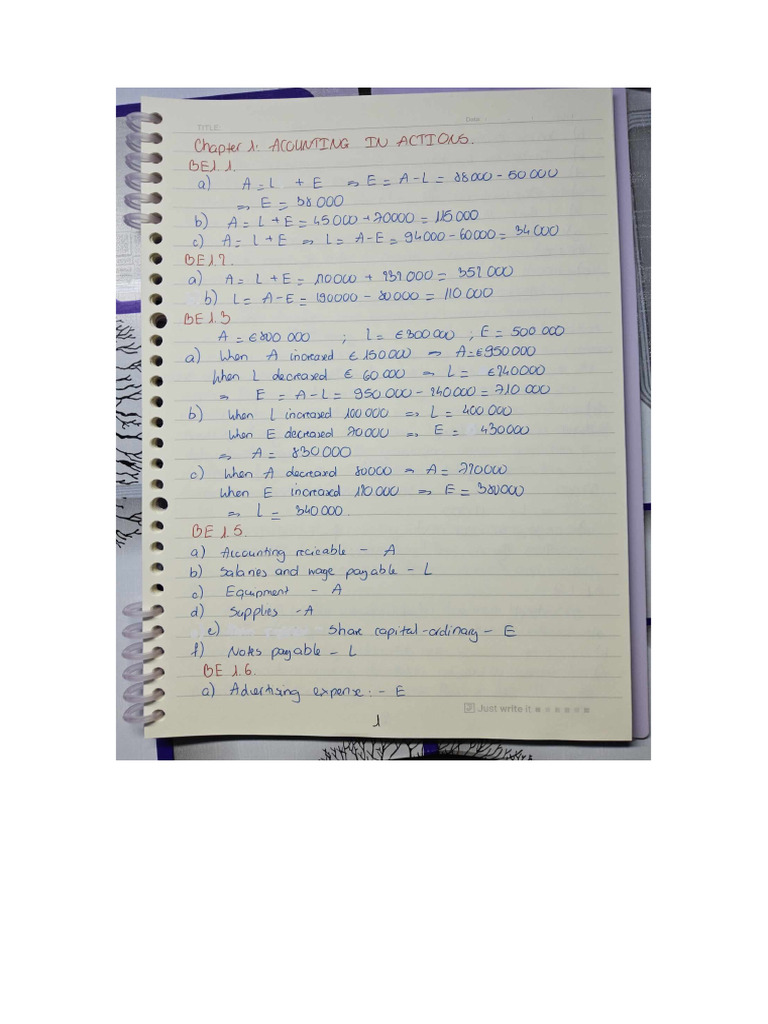 TITLE
Date
Chapter 1: ACOUNTING IN ACTIONS.
BE1.1.
a) A = L + E => E = A - L = 88000 - 50 000
=> E = 38 000
b) A = L + E = 45 000 + 70000 = 115 000
c) A = L + E => L = A - E = 94000 - 60000 = 34 000
BE1.2.
a) A = L + E = 120 000 + 232.000 = 352 000
b) L = A - E = 190000 - 80000 = 110 000
BE1.3
A = €800 000 ; L = €300 000 ; E = 500 000
a) When A increased € 150 000 => A = €950 000
When L decreased € 60 000 => L = €240000
=> E = A - L = 950.000 - 240000 = 710 000
b) When L increased 100 000 => L = 400 000
When E decreased 70000 => E = 430000
=> A = 830 000
c) When A decreasd 80000 => A = 720000
When E increasd 120.000 => E = 380000
=> L = 340000.
BE 1.5.
a) Accounting reciable - A
b) Salaries and wage payable - L
c) Equipment - A
d) Supplies - A
e) Share capital-ordinary - E
f) Notes payable - L
BE 1.6.
a) Advertising expense: - E
Just write it
1